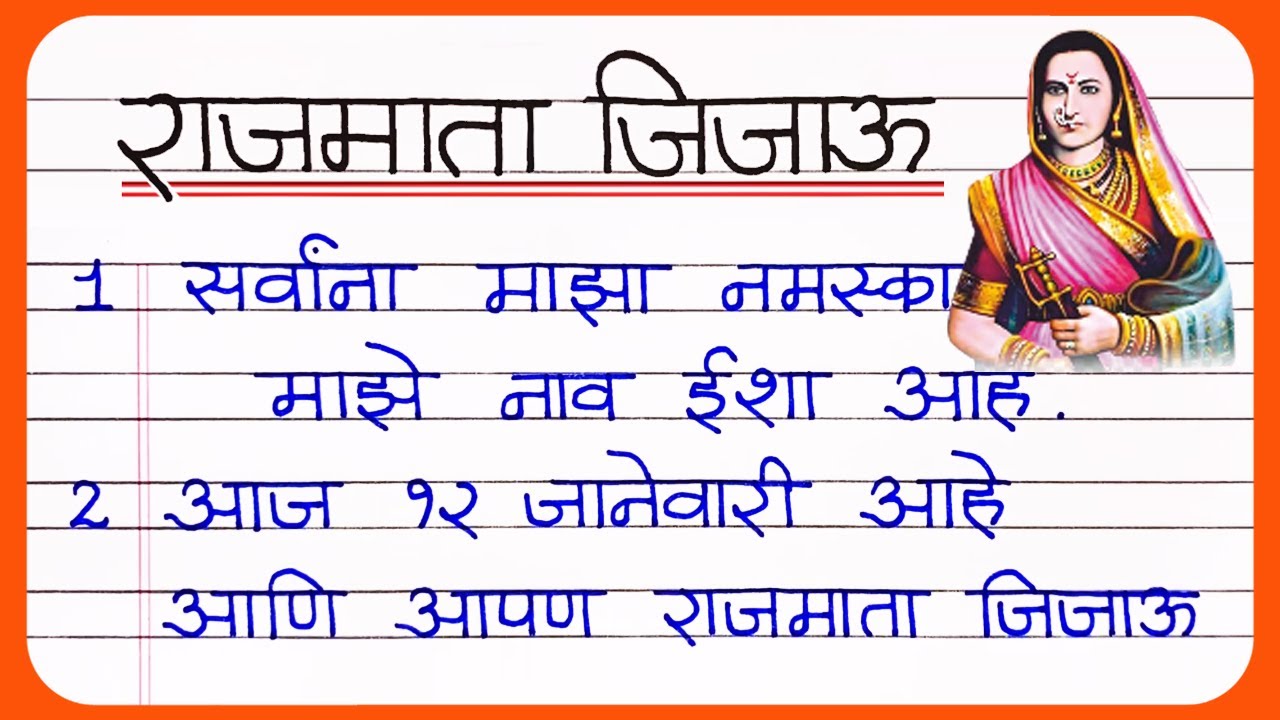 राजमाता जिजाऊ
1 सर्वांना माझा नमस्का
माझे नाव ईशा आह.
2 आज १२ जानेवारी आहे
आणि आपण राजमाता जिजाऊ